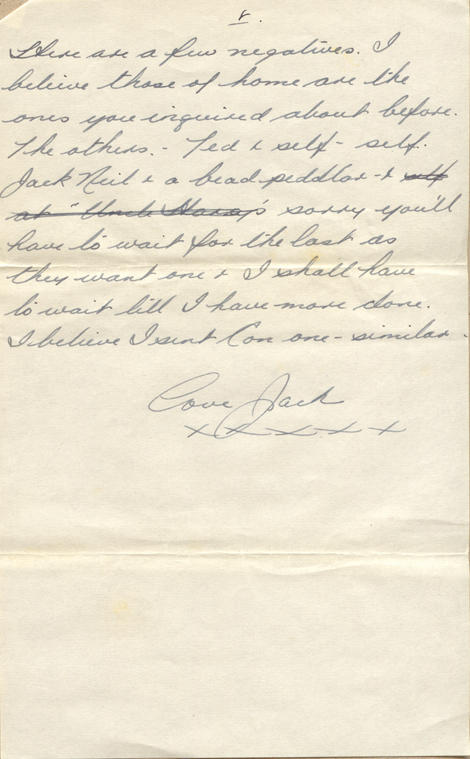 V.
There are a few negatives. I
believe those of home are the
ones you inquired about before.
The others. - Ted & self - self.
Jack Neil & a bead peddlar - & self
at "Uncle Harry's sorry you'll
have to wait for the last as
they want one & I shall have
to wait till I have more done.
I believe I sent Con one - similar.
Love Jack
x x x x x